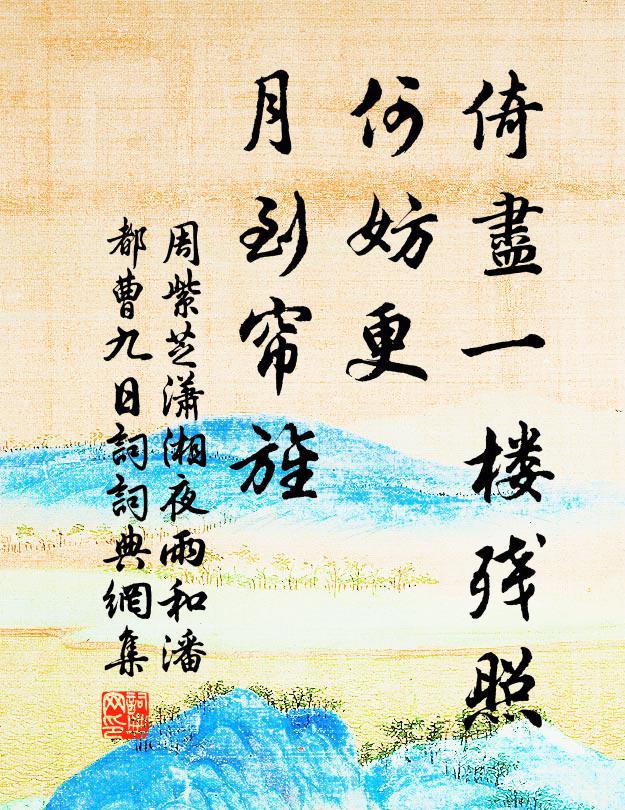 倚盡一楼残照
何妨更
月到帘旌
周紫芝瀟湘夜雨和潘
都曹九日詞詞典網集
詞典
网印